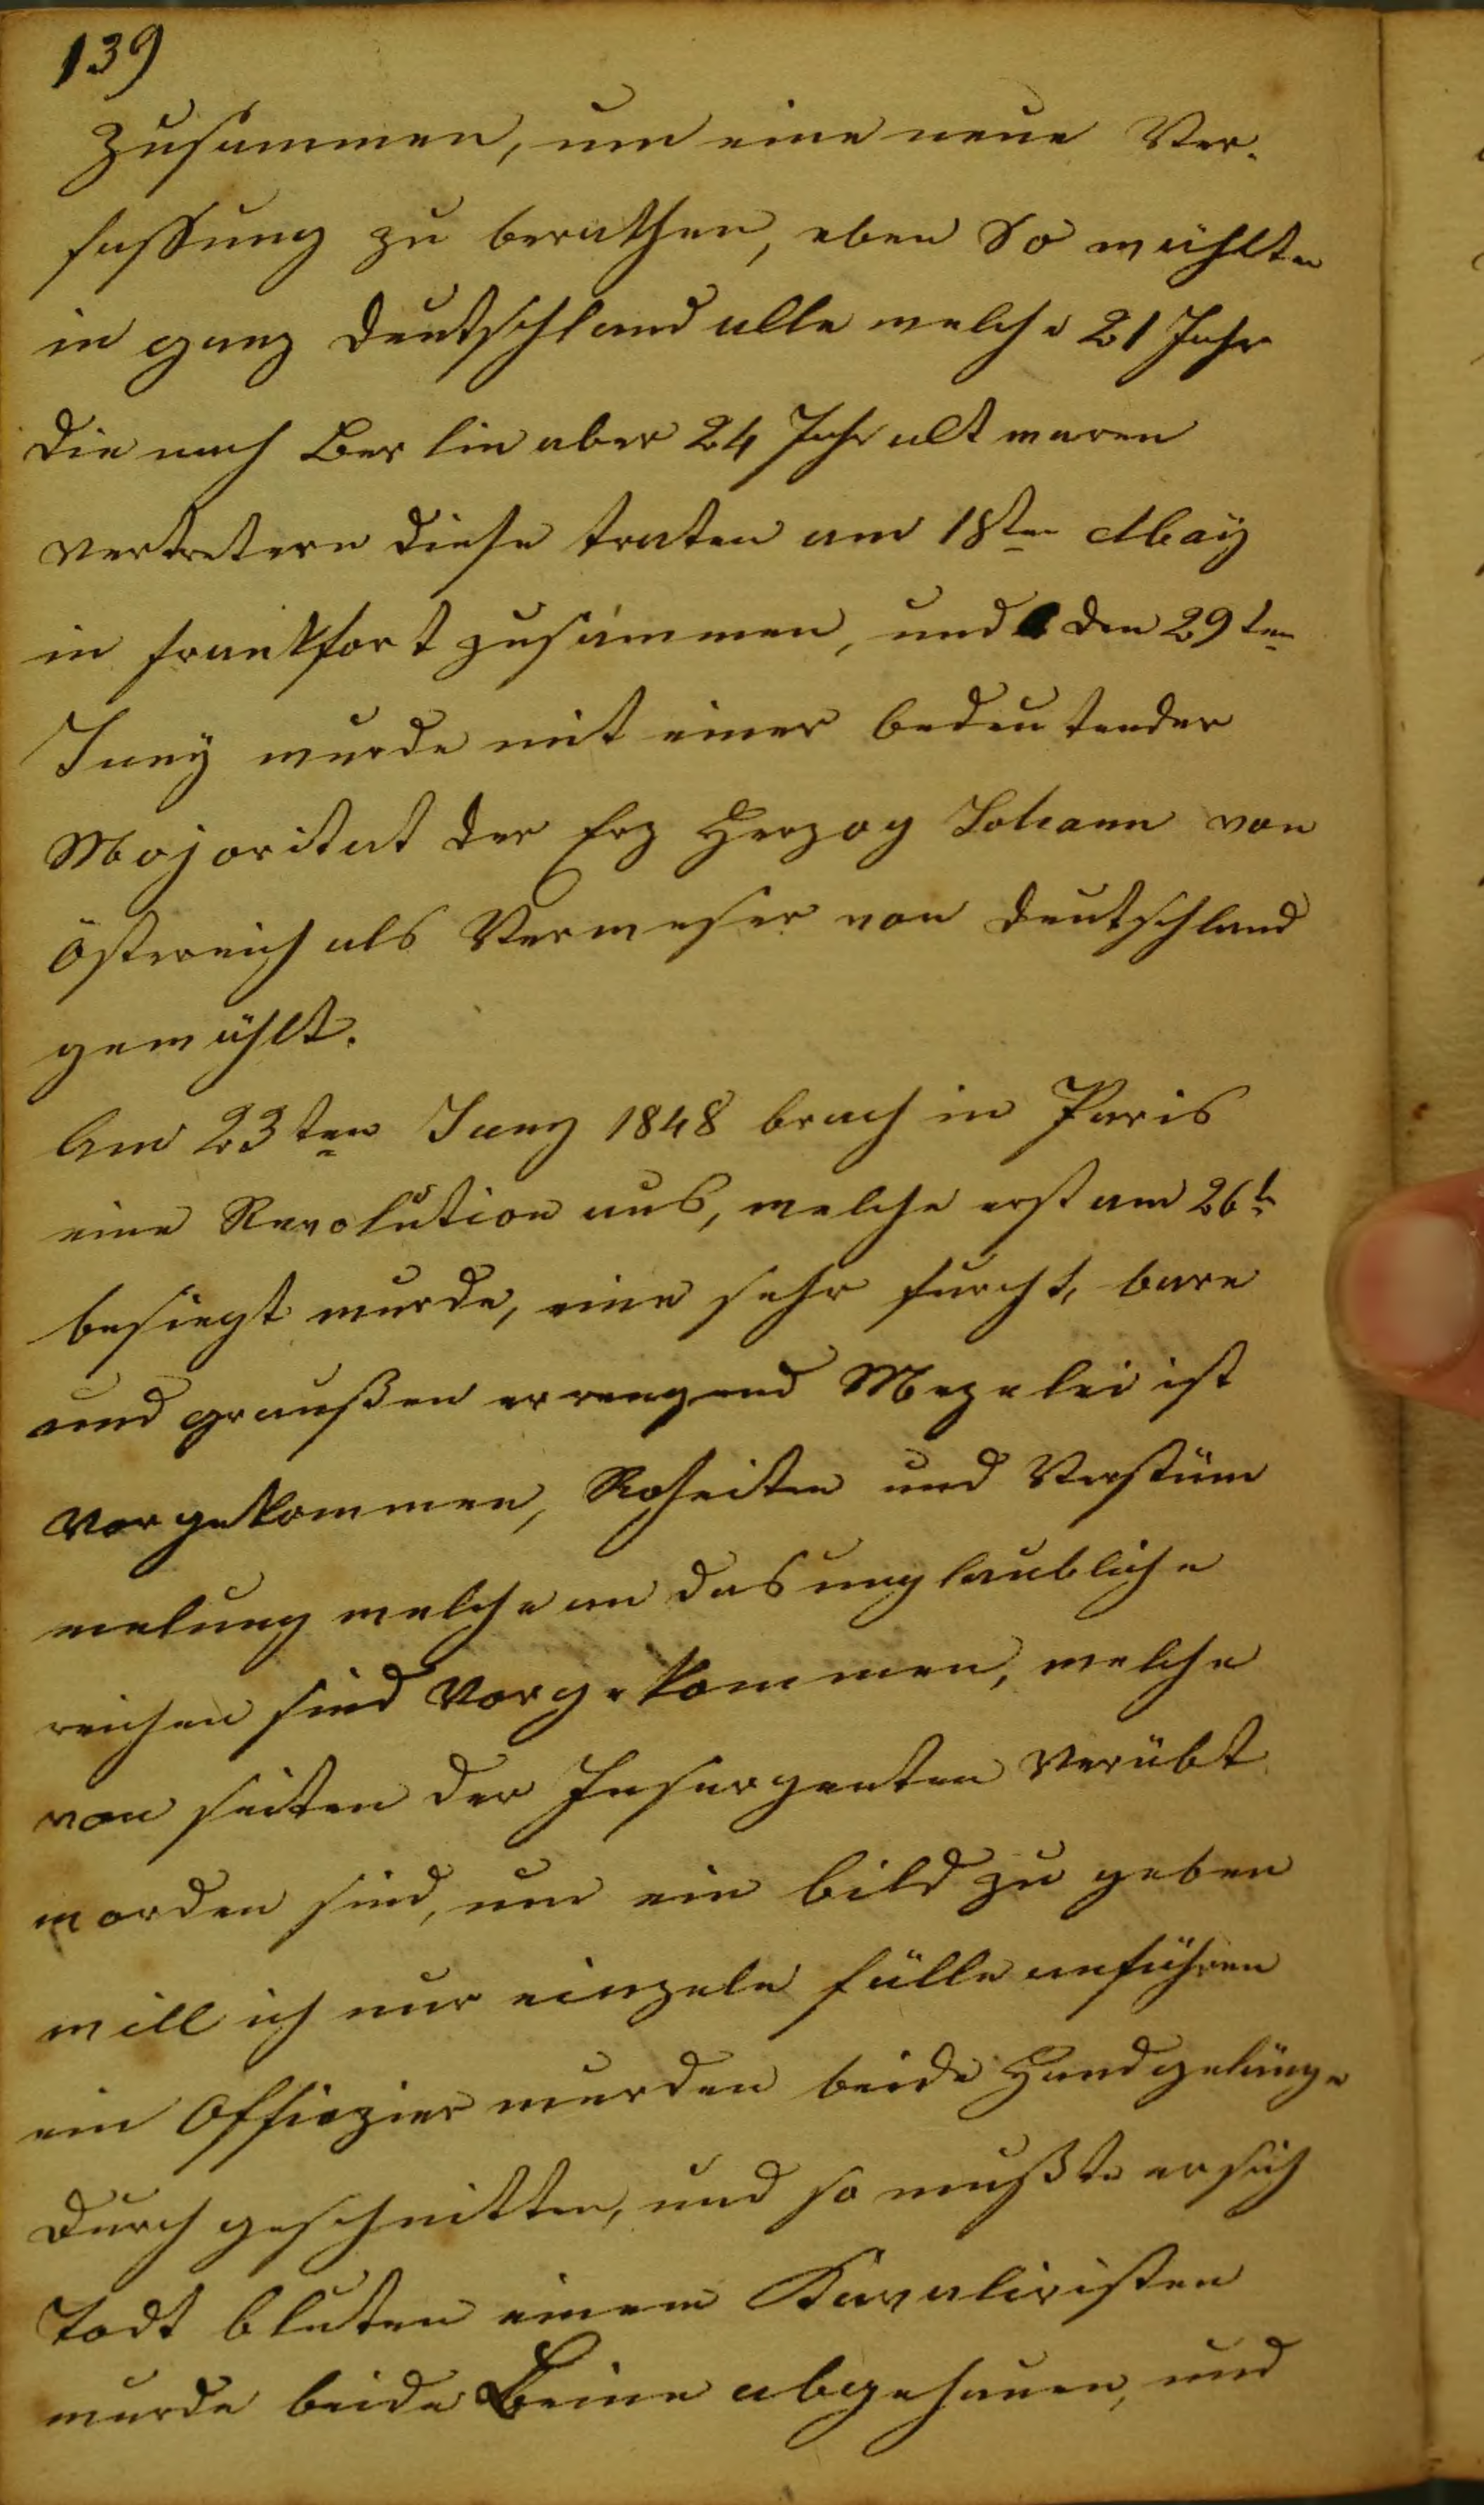 139
zusammen, um eine neue Ver-
fassung zu berathen, eben so wählten
in ganz Deutschland alle welche 21 Jahr
die nach Berlin aber 24 Jahr alt waren
vertretern diese traten am 18ten May
in Frankfort zusammen, und den 29ten
Juny wurde mit einer bedeutender
Majoritat der Erz Herzog Johann von
östereich als Verweser von Deutschland
gewählt.
Am 23ten Juny 1848 brach in Paris
eine Revolution aus, welche erst am 26t
besiegt wurde, eine sehr furcht, bare
und graußen erregend Mezelei ist
vorgekommen, Roheiten und Verstüm
melung welche an das unglaubliche
reichen sind vorgekommen, welche
von seiten der Insurgenten verübt
worden sind, um ein bild zu geben
will ich nur einzele fälle anführen
ein Offiezier wurden beide Handgelänge
durch geschnitten, und so mußte er sich
todt bluten einem Kavaliristen
wurde beide Beine abgehauen, und